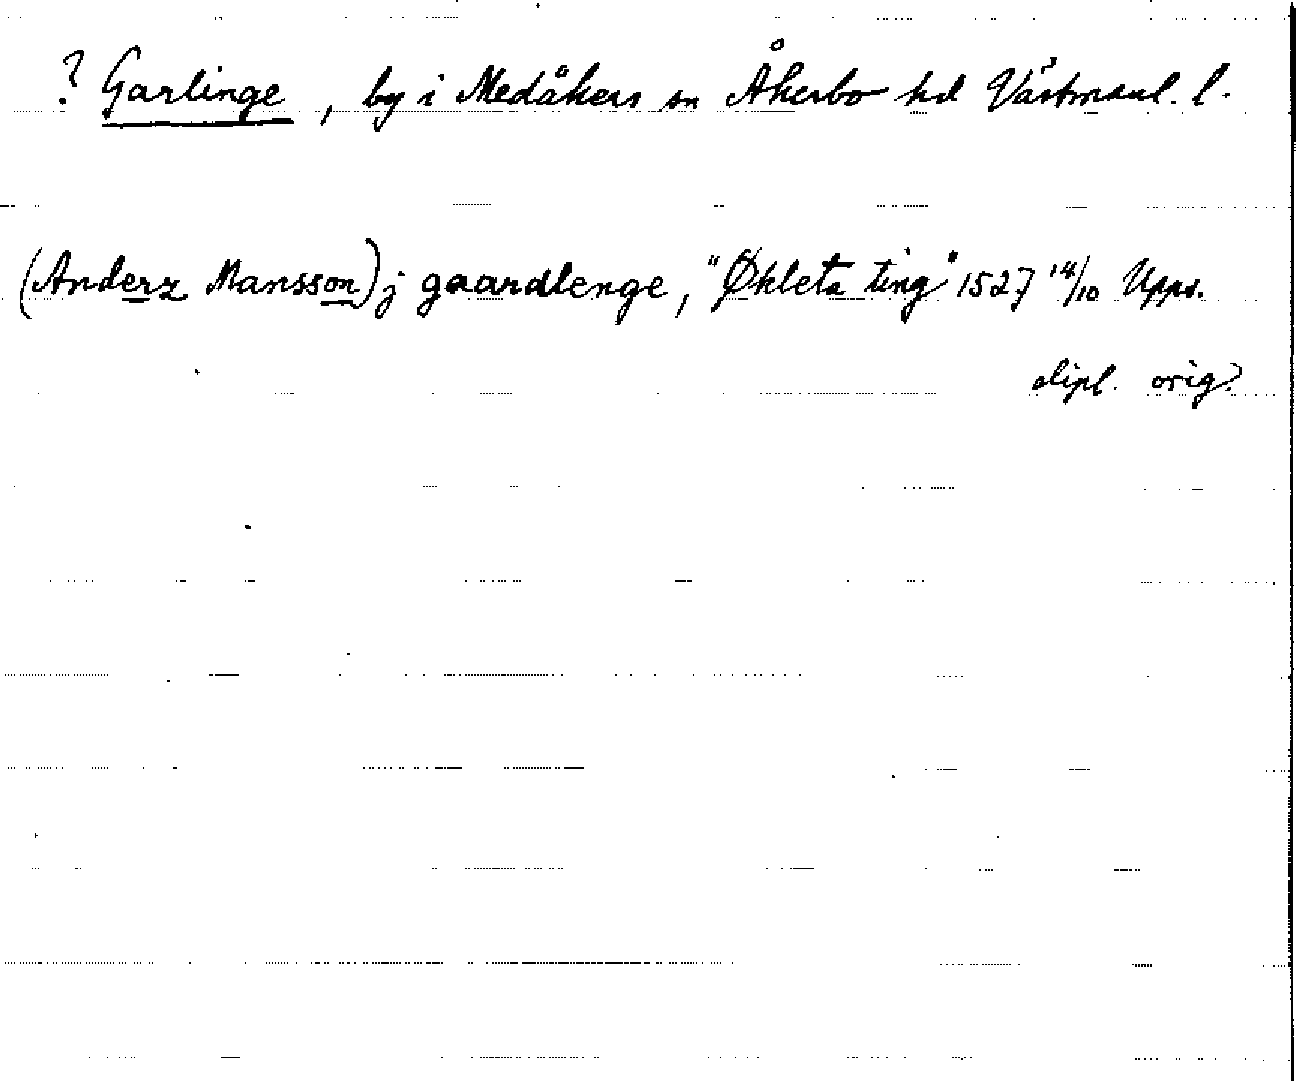 ? Garlinge, by i Medåkers sn Åkerbo hd Västmanl. l.
(Anderz Mansson) j gaardlenge, "Økleta ting" 1527 14/10 Upps.
dipl. orig.